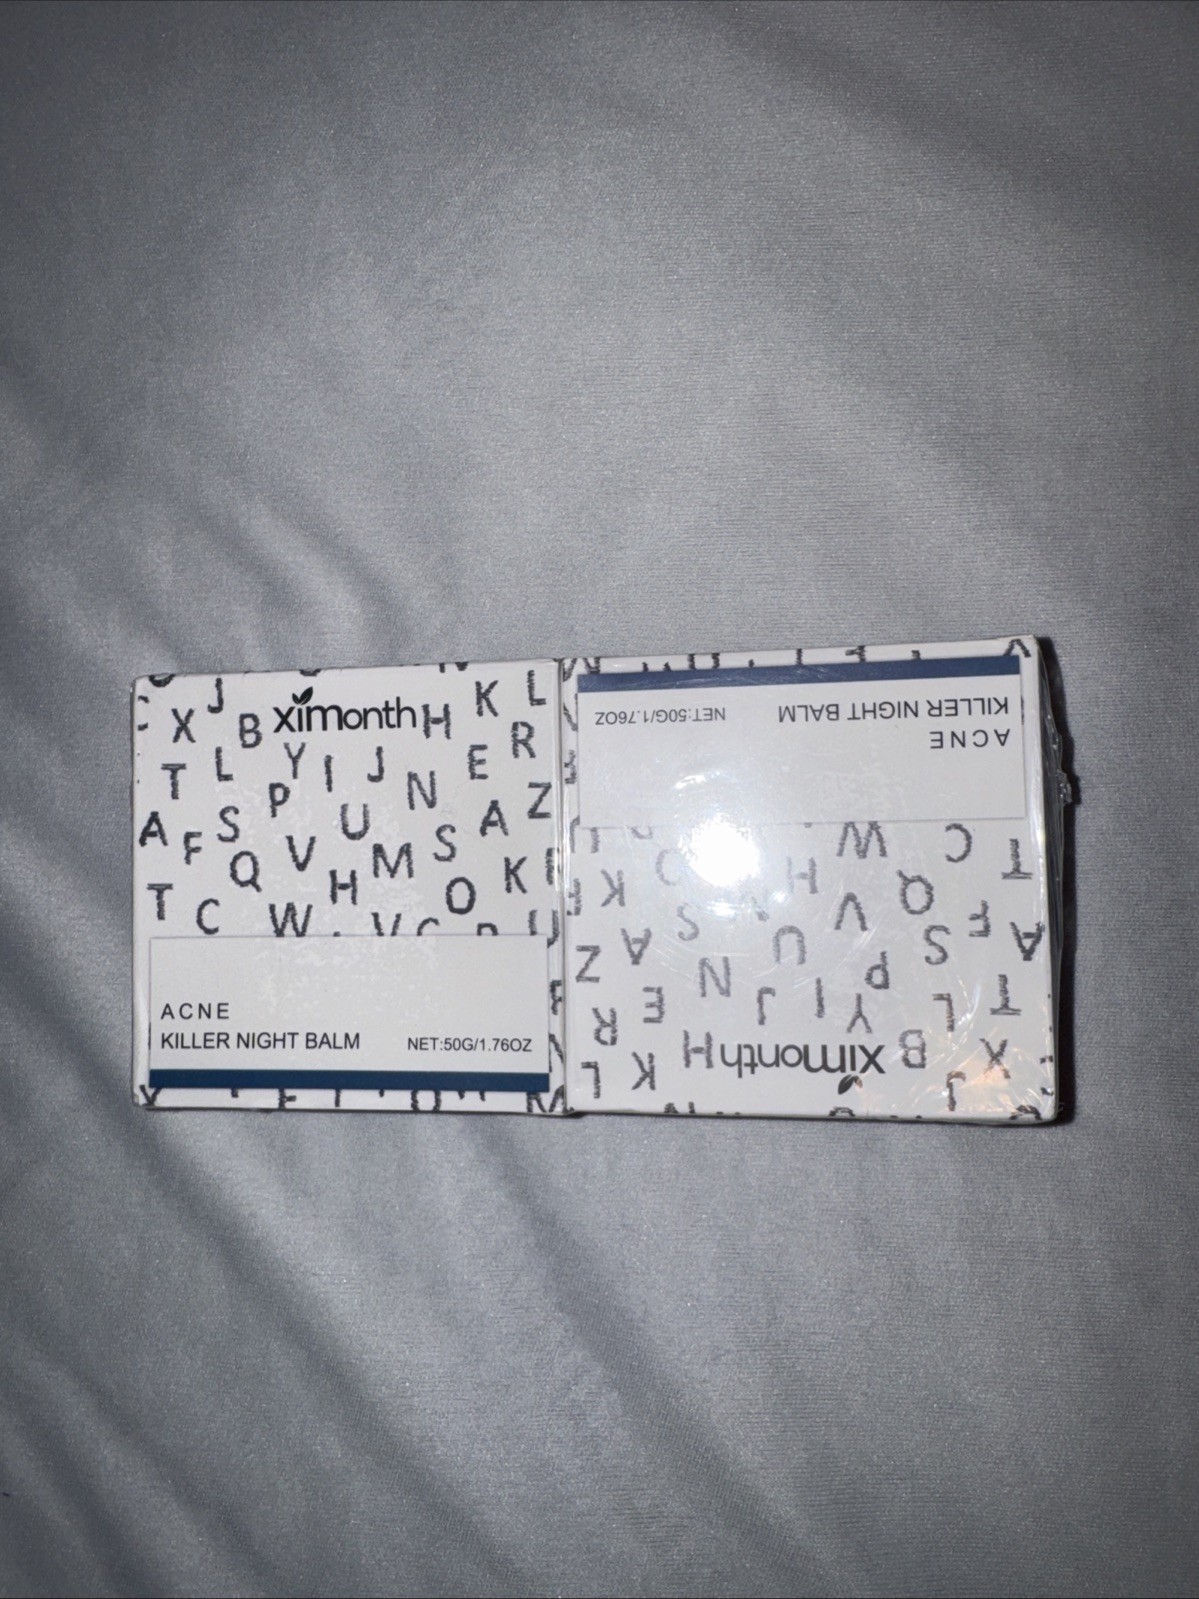 ximonth
J K L
X B H
R
T L Y I J E
P N Z
A S U A
F V S
Q M K
H O
T C W
ACNE
KILLER NIGHT BALM NET:50G/1.76OZ
KILLER NIGHT BALM NET:50G/1.76OZ
ACNE
C T
W
H K
Q F A
V S A Z
S U
P N
T L Y I J E R
X B H K L
J
ximonth